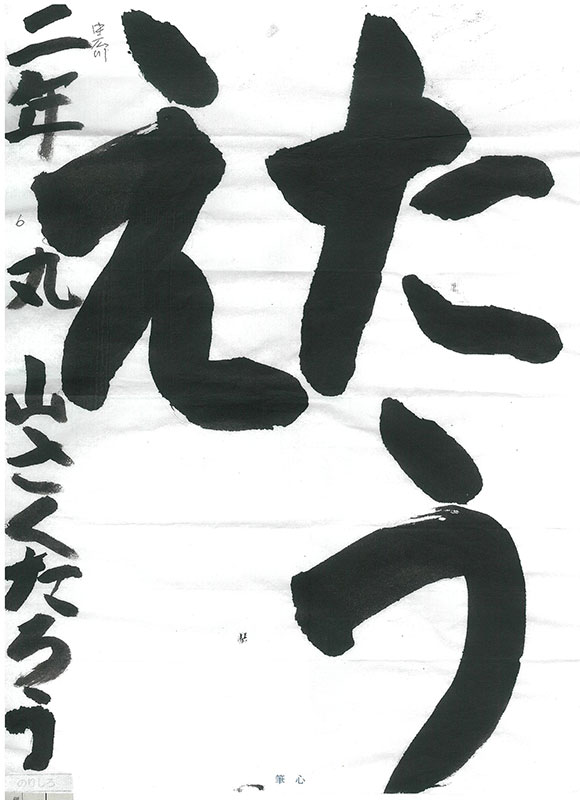 たう
え
二年 丸山さくたろう
6
のりしろ
筆心